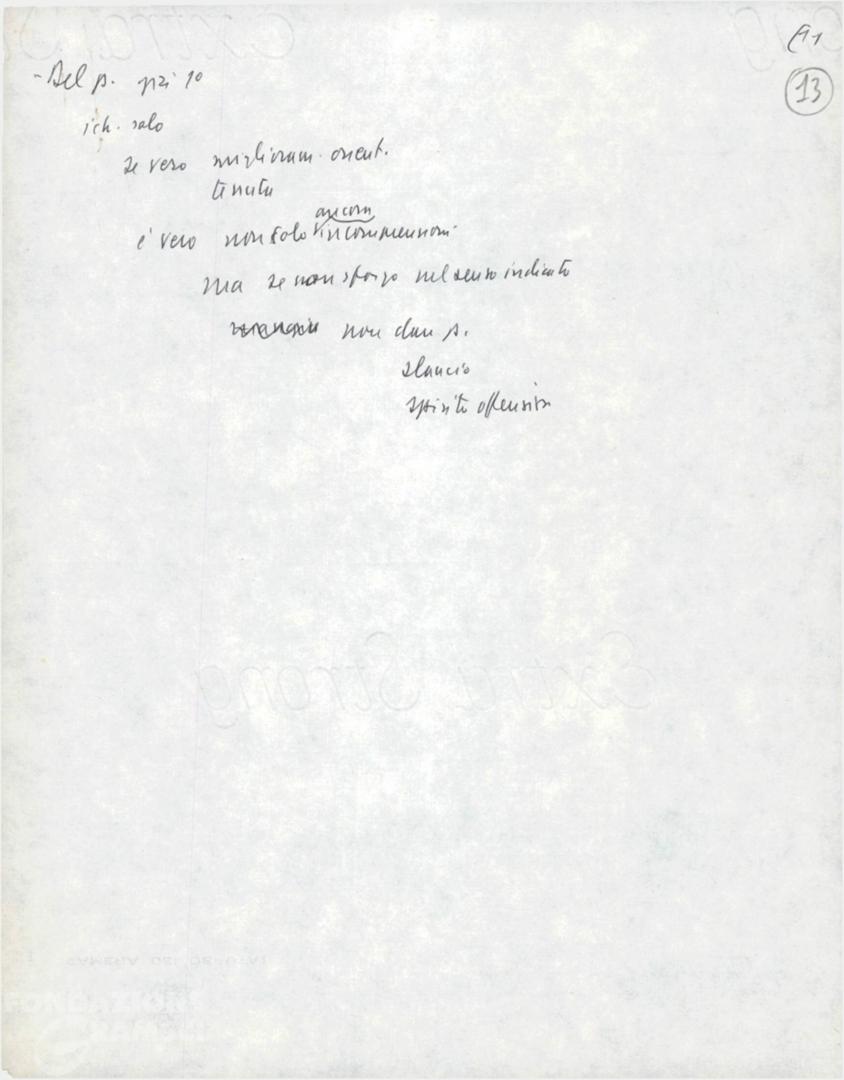 13
- Del p. già 10
ich. solo
se vero miglioram. orient.
tenuta
ancora
è vero non solo incomprensioni
ma se non sforzo nel senso indicato
non dare p.
slancio
spirito offensivo
Extra Strong
FONDAZIONE